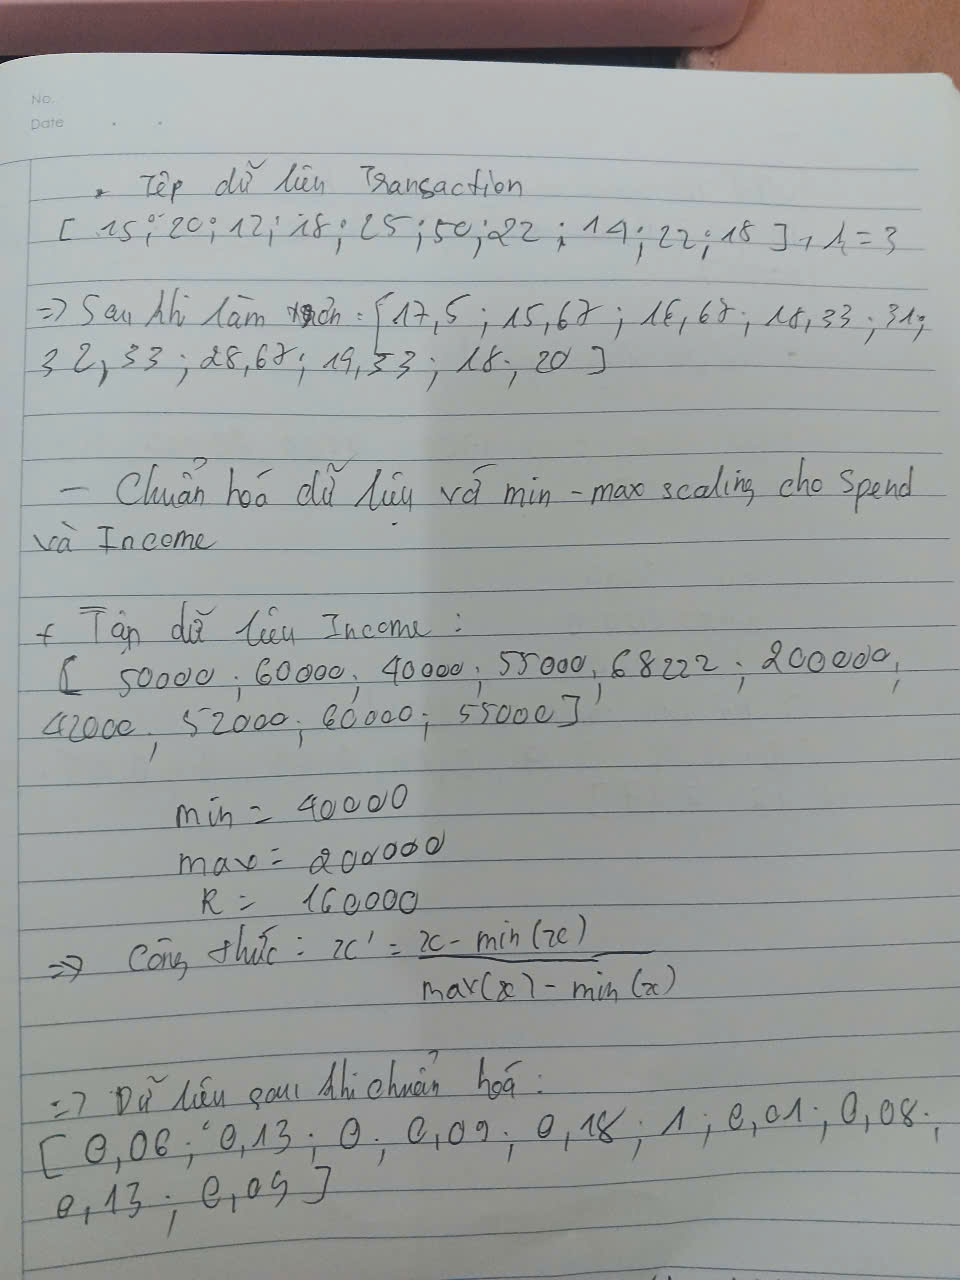 No.
Date
* Tệp dữ liệu Transaction
[ 15; 20; 12; 18; 25; 50; 22; 14; 22; 18 ], k = 3
=> Sau khi làm trơn: [ 17,5; 15,67; 16,67; 18,33; 31;
32,33; 28,67; 19,33; 18; 20 ]
- Chuẩn hoá dữ liệu vớ min - max scaling cho Spend
và Income
+ Tập dữ liệu Income :
[ 50000; 60000; 40000; 55000; 68222; 200000;
42000; 52000; 60000; 55000 ]
min = 40000
max = 200000
R = 160000
=> Công thức: x' = x - min(x)
max(x) - min(x)
=> Dữ liệu sau khi chuẩn hoá :
[ 0,06; 0,13; 0; 0,09; 0,18; 1; 0,01; 0,08;
0,13; 0,09 ]